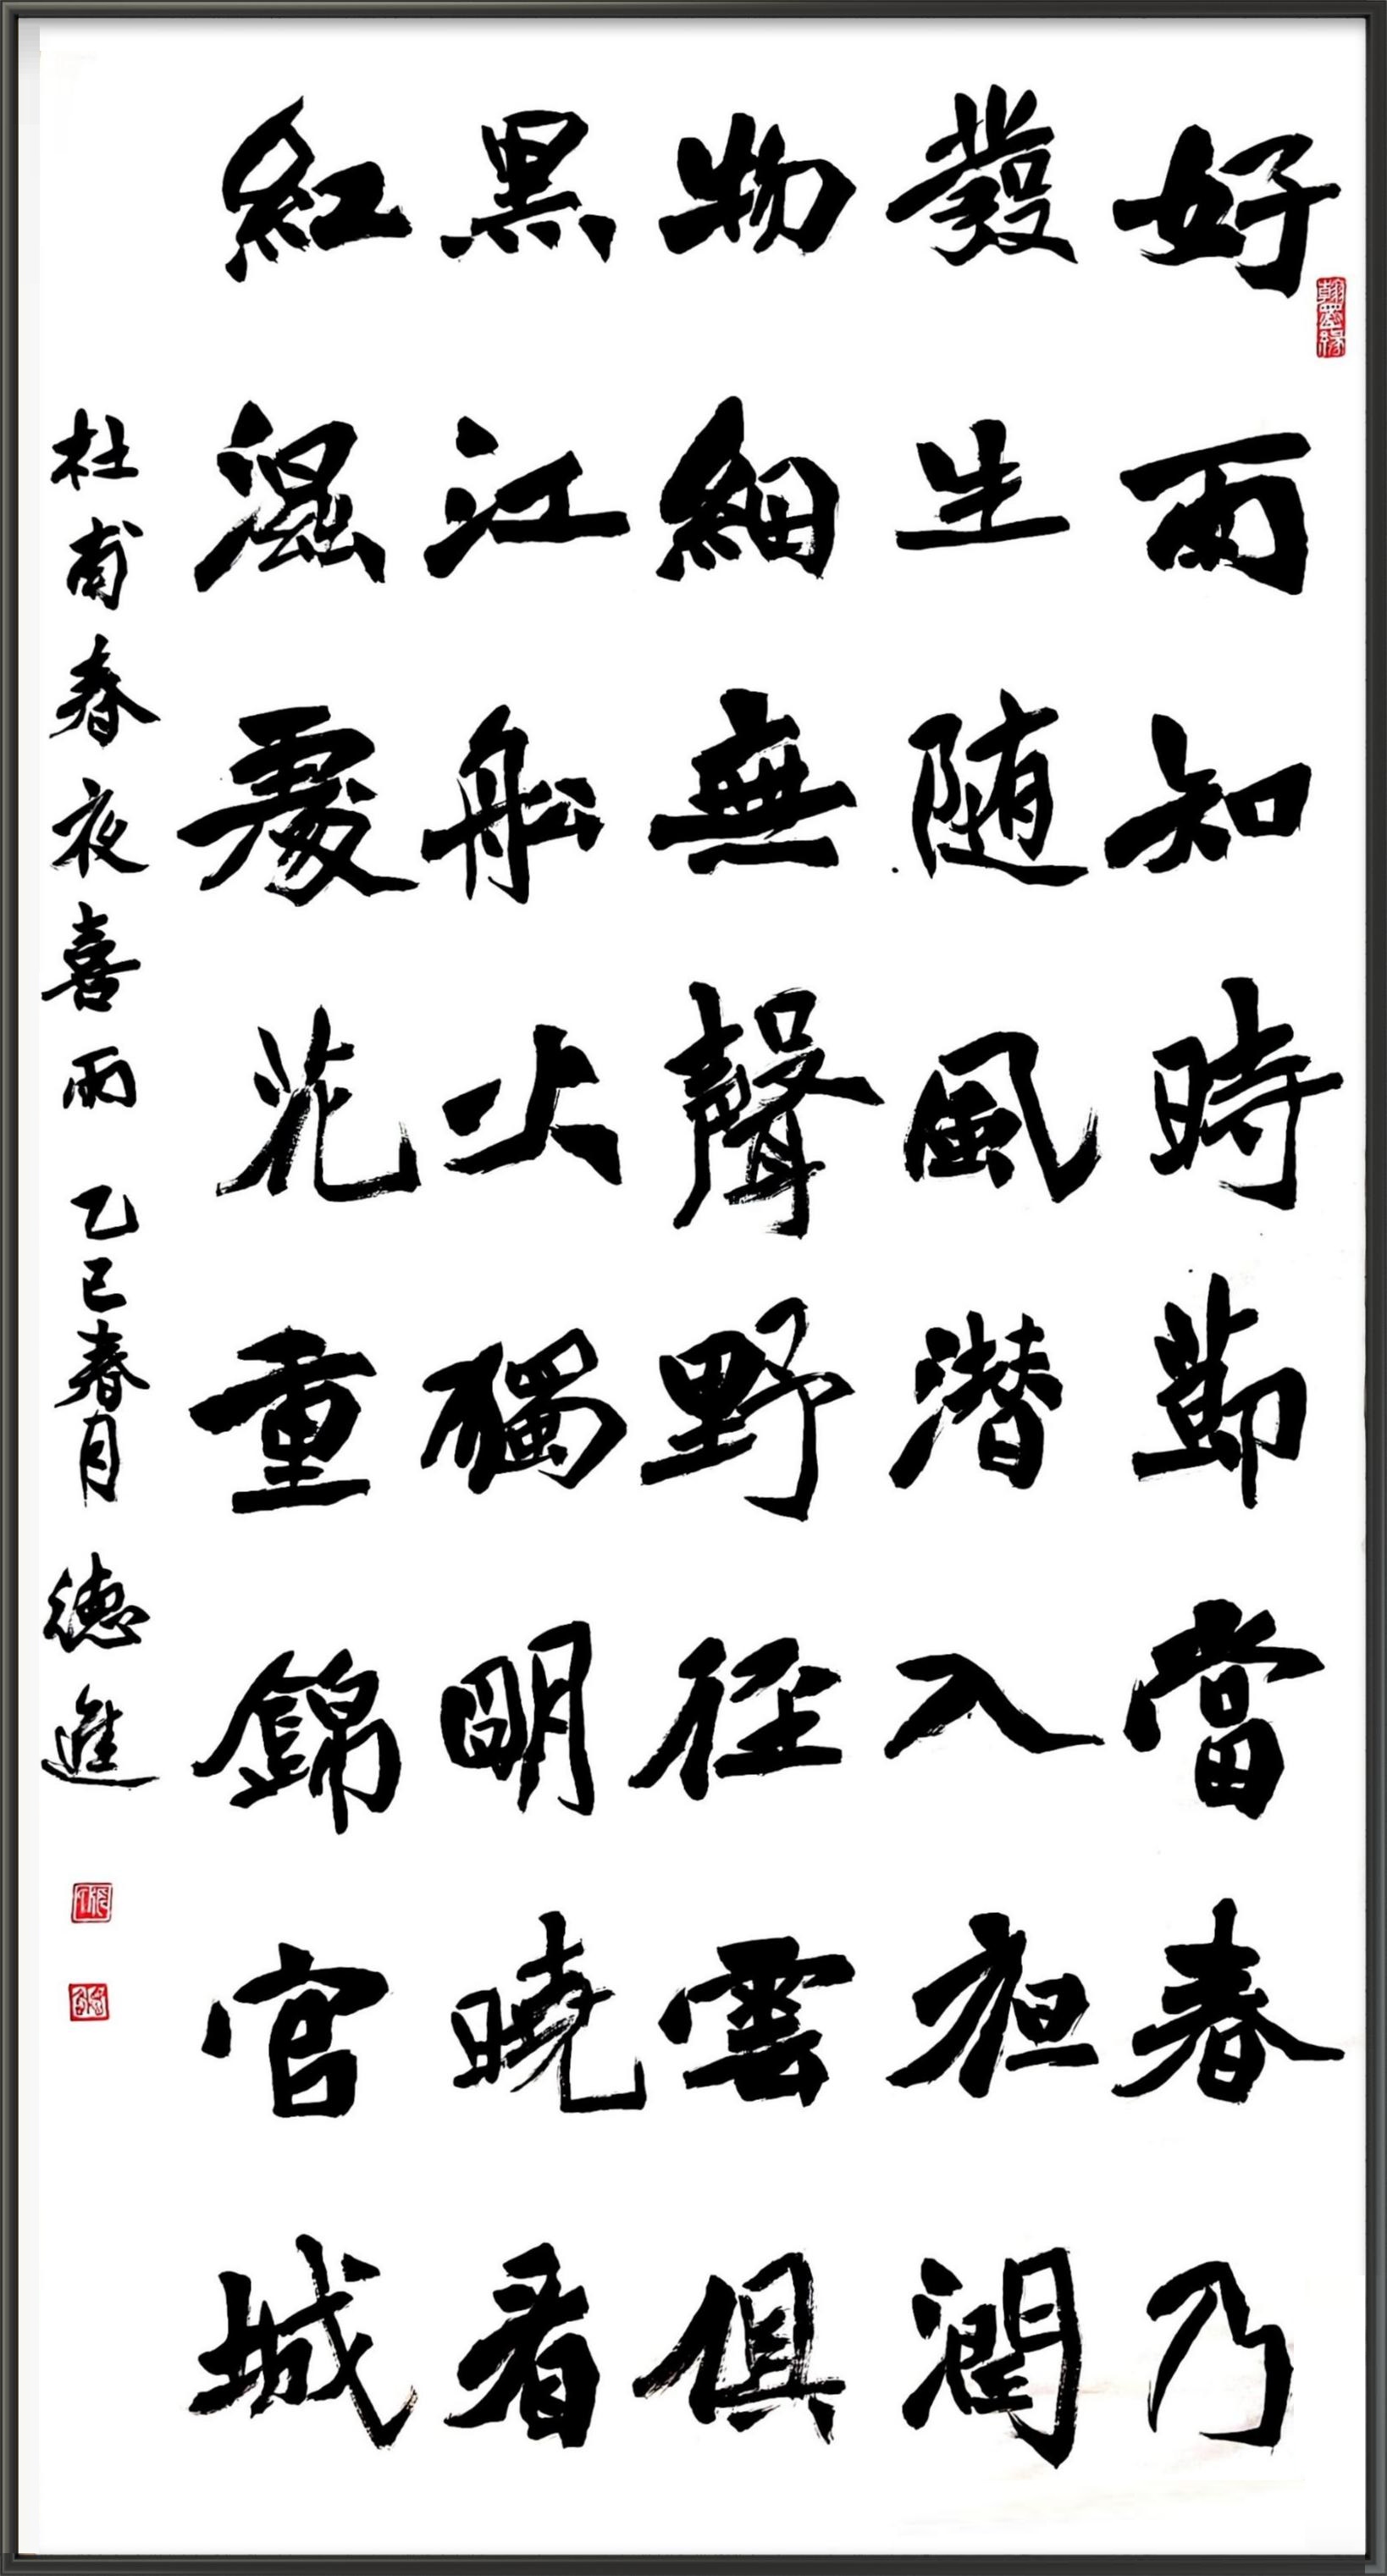 好雨知時節當春乃
發生随風潜入夜潤
物細無聲野径雲俱
黑江船火獨明曉看
紅濕處花重錦官城
杜甫春夜喜雨 乙巳春月 德進
翰墨緣